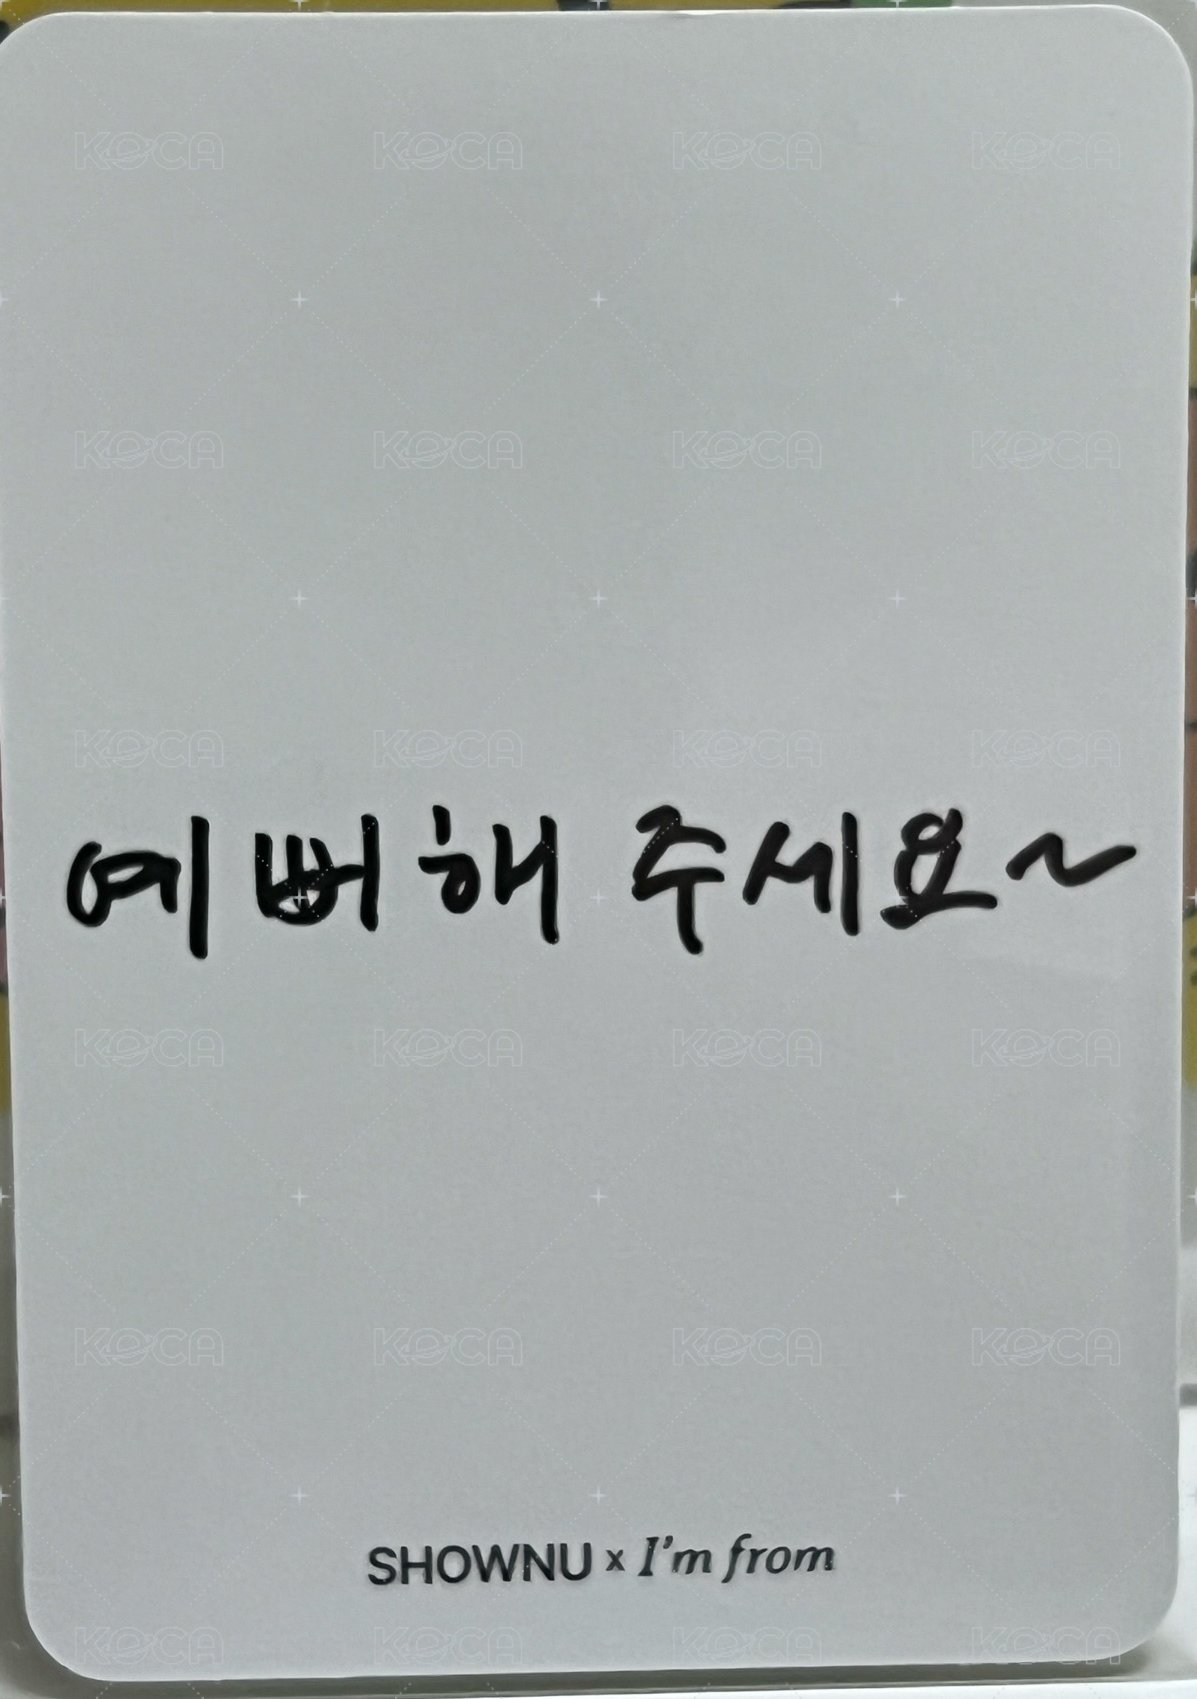 예뻐해 주세요~
SHOWNU x I'm from
KOCA KOCA KOCA KOCA
KOCA KOCA KOCA KOCA
KOCA KOCA KOCA KOCA
KOCA KOCA KOCA KOCA
KOCA KOCA KOCA KOCA
KOCA KOCA KOCA KOCA